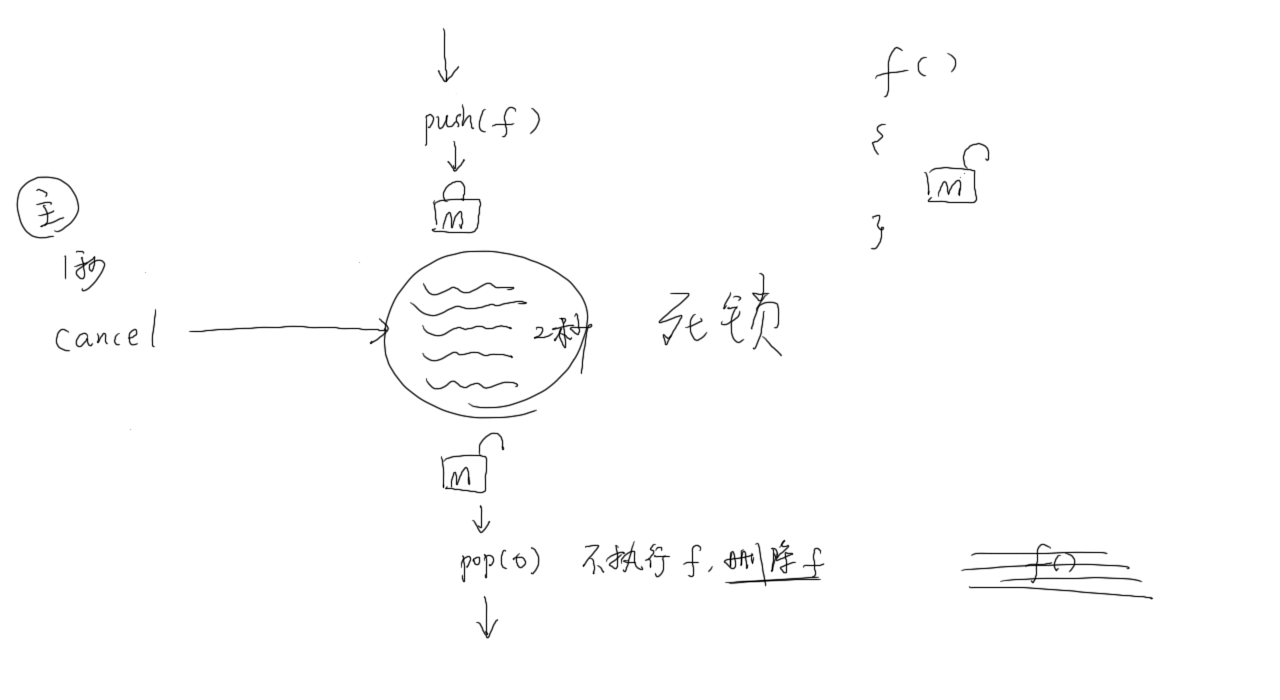 push(f)
M
主
1秒
cancel
2秒
M
pop(0) 不执行 f, 删除 f
死锁
f()
{
M
}
f()